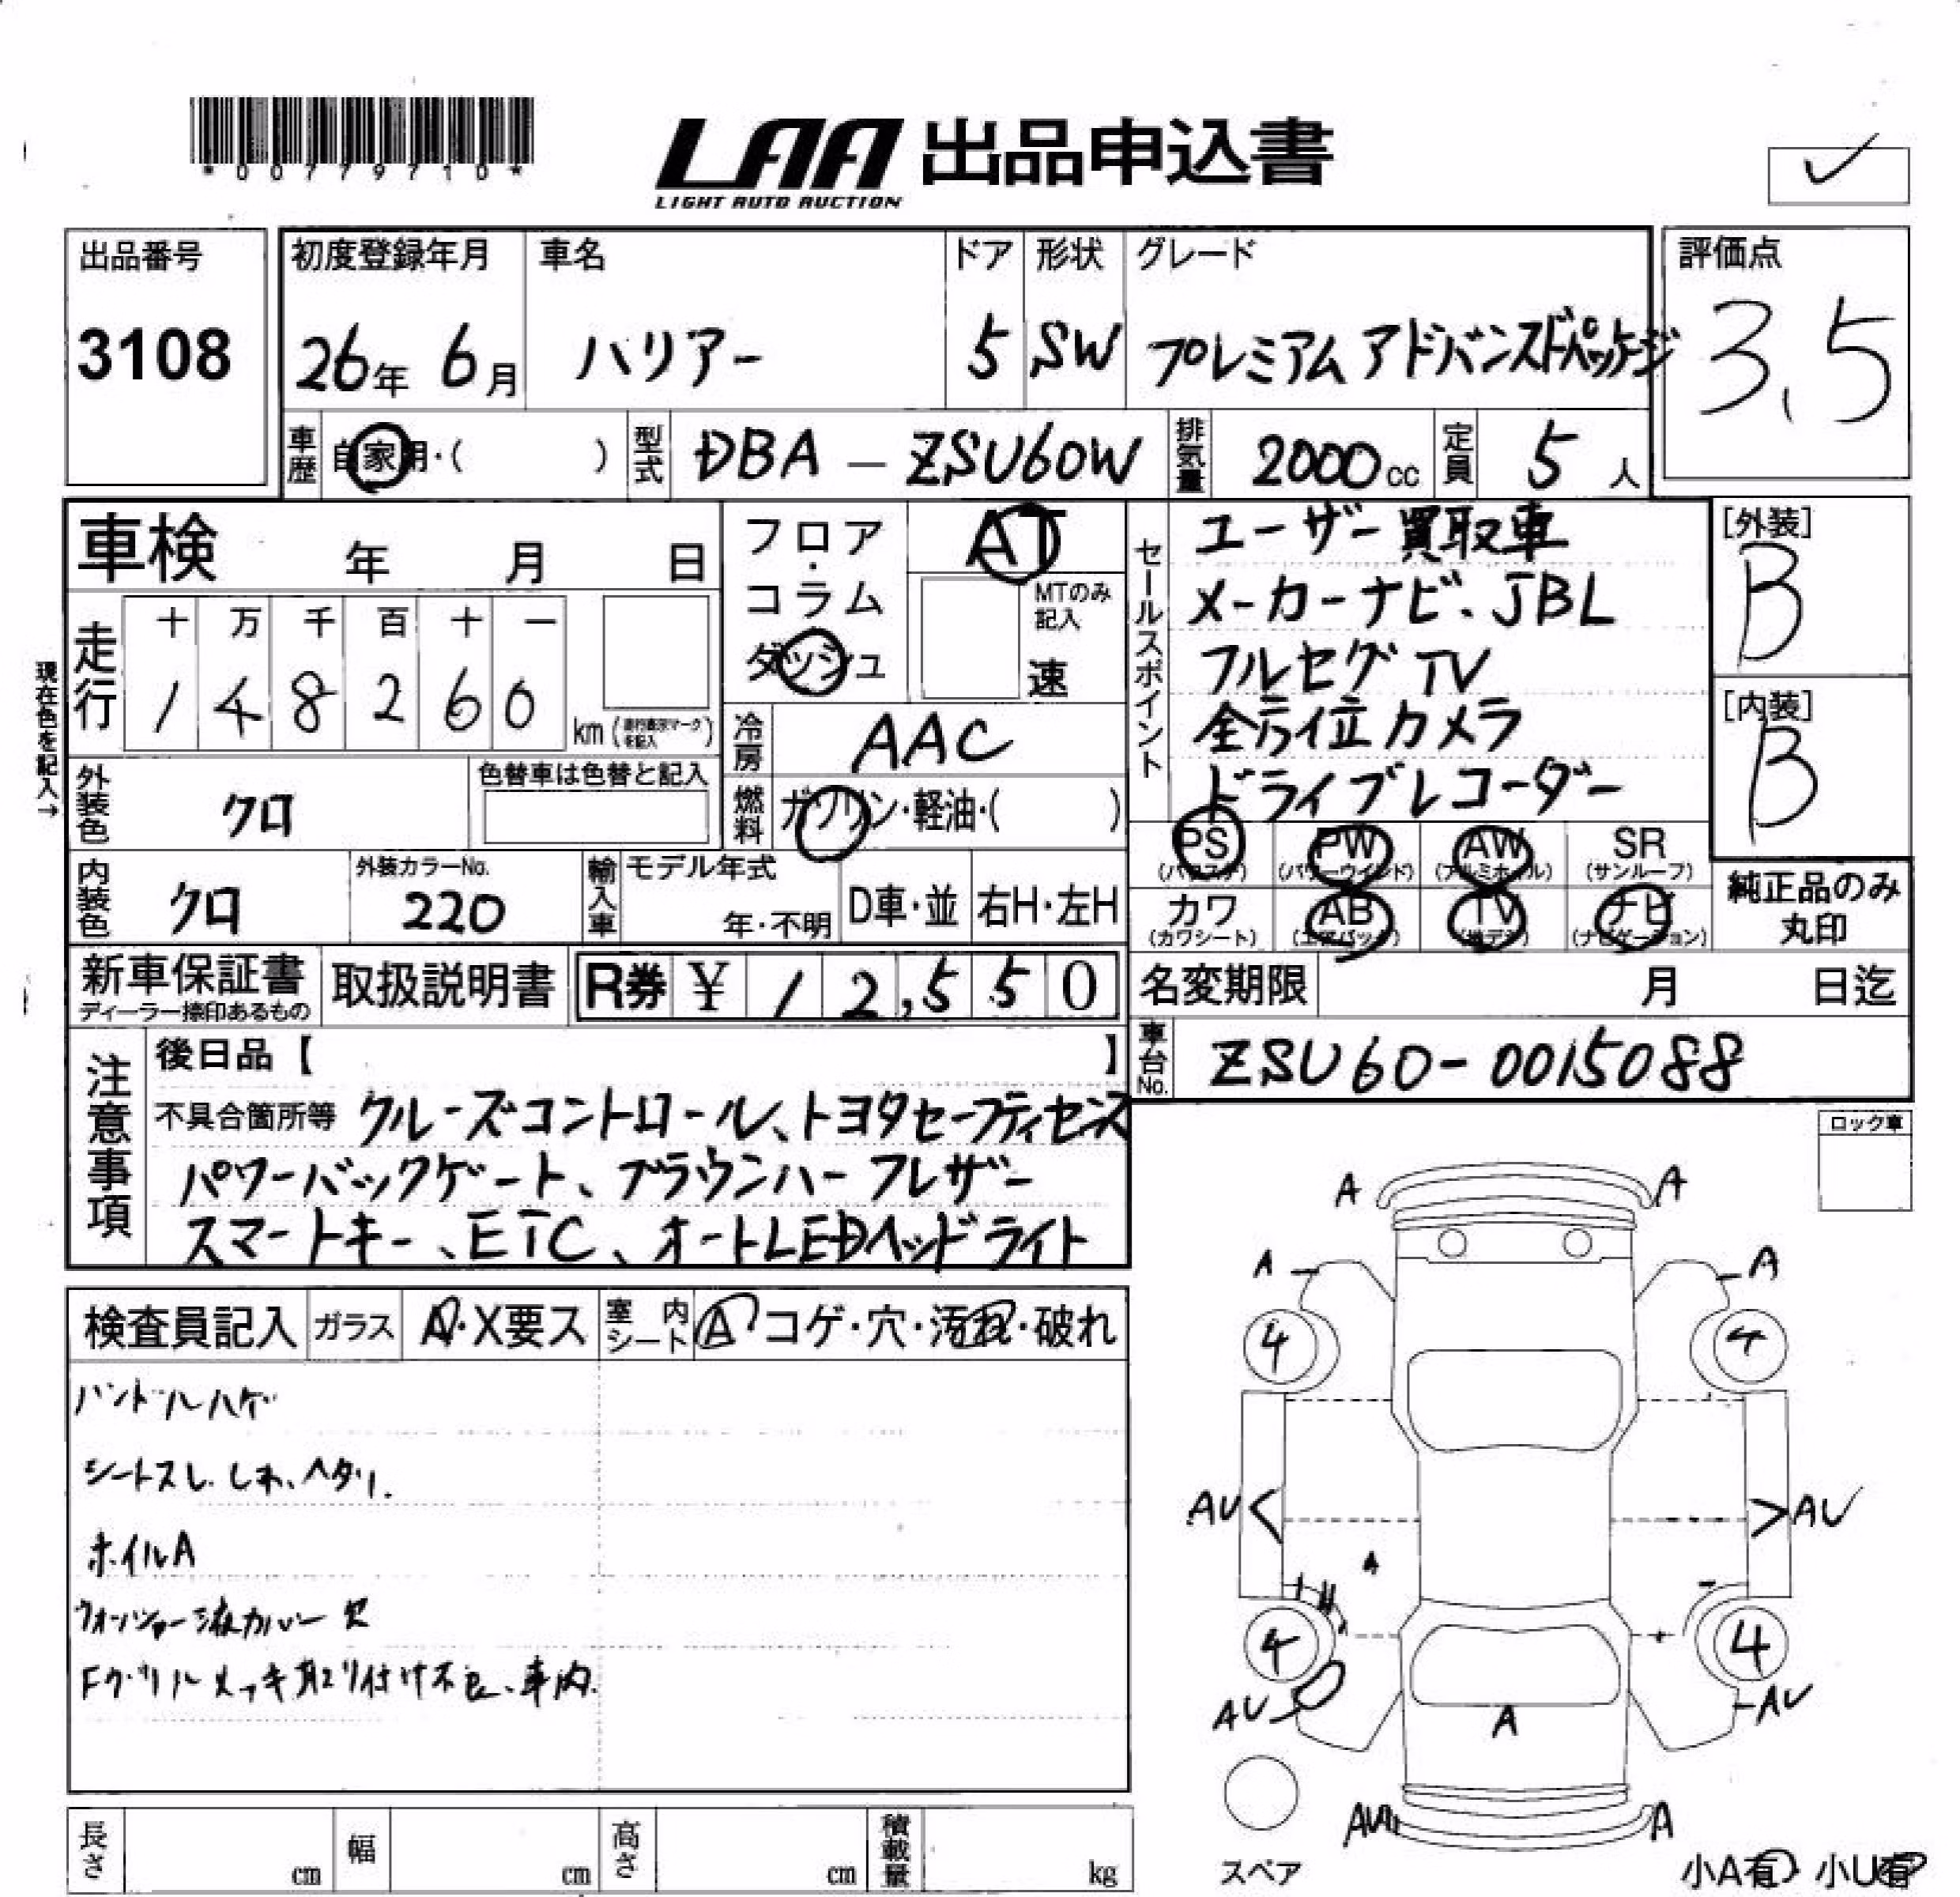 *00779710*
LAA 出品申込書
LIGHT AUTO AUCTION
出品番号
3108
初度登録年月
26年 6月
車名
ハリアー
ドア
5
形状
SW
グレード
プレミアムアドバンスドパッケージ
評価点
3.5
車歴 自家用・( )
型式 DBA-ZSU60W
排気量 2000cc
定員 5人
車検 年 月 日
フロア・コラム
ダッシュ
AT
MTのみ記入
速
現在色を記入→
走行
十 万 千 百 十 一
1 4 8 2 6 0
km
冷房 AAC
外装色 クロ
色替車は色替と記入
燃料 ガソリン・軽油・( )
内装色 クロ
外装カラーNo.
220
輸入車
モデル年式
年・不明
D車・並
右H・左H
セールスポイント
ユーザー買取車
メーカーナビ、JBL
フルセグTV
全方位カメラ
ドライブレコーダー
[外装]
B
[内装]
B
PS
(パワステ)
PW
(パワーウインド)
AW
(アルミホイル)
SR
(サンルーフ)
カワ
(カワシート)
AB
(エアバック)
TV
(地デジ)
ナビ
(ナビゲーション)
純正品のみ
丸印
新車保証書
ディーラー捺印あるもの
取扱説明書
R券 ¥ 12,550
名変期限 月 日迄
車台No. ZSU60-0015088
注意事項
後日品【 】
不具合箇所等 クルーズコントロール、トヨタセーフティセンス
パワーバックゲート、ブラウンハーフレザー
スマートキー、ETC、オートLEDヘッドライト
ロック車
検査員記入
ガラス
A・X要ス
室内
シート
A コゲ・穴・汚れ・破れ
ハンドルハゲ
シートスレ、しわ、ヘタリ.
ホイルA
ウォッシャー液カバー欠
Fグリルメッキ取り付け不良、車内
A A
A A
4 4
AU AU
A
4 4
AU AU
A
AU A
スペア
小A有・小U有
長さ cm
幅 cm
高さ cm
積載量 kg